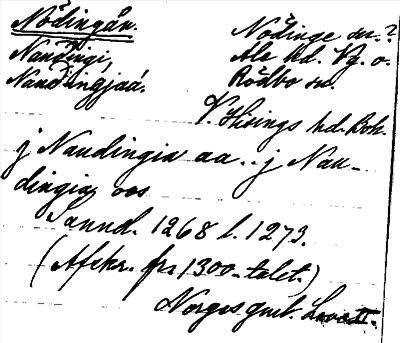 Nödingån.
Nödinge sn.?
Naudingi,
Ale hd. Vg. o.
Naudingjaá.
Rödbo sn.
V. Hisings hd. Boh.
j Naudingia aa .. j Nau-
dingia oos
sannd. 1268 l. 1273.
(Afskr. fr. 1300-talet.)
Norges gml. Love II.